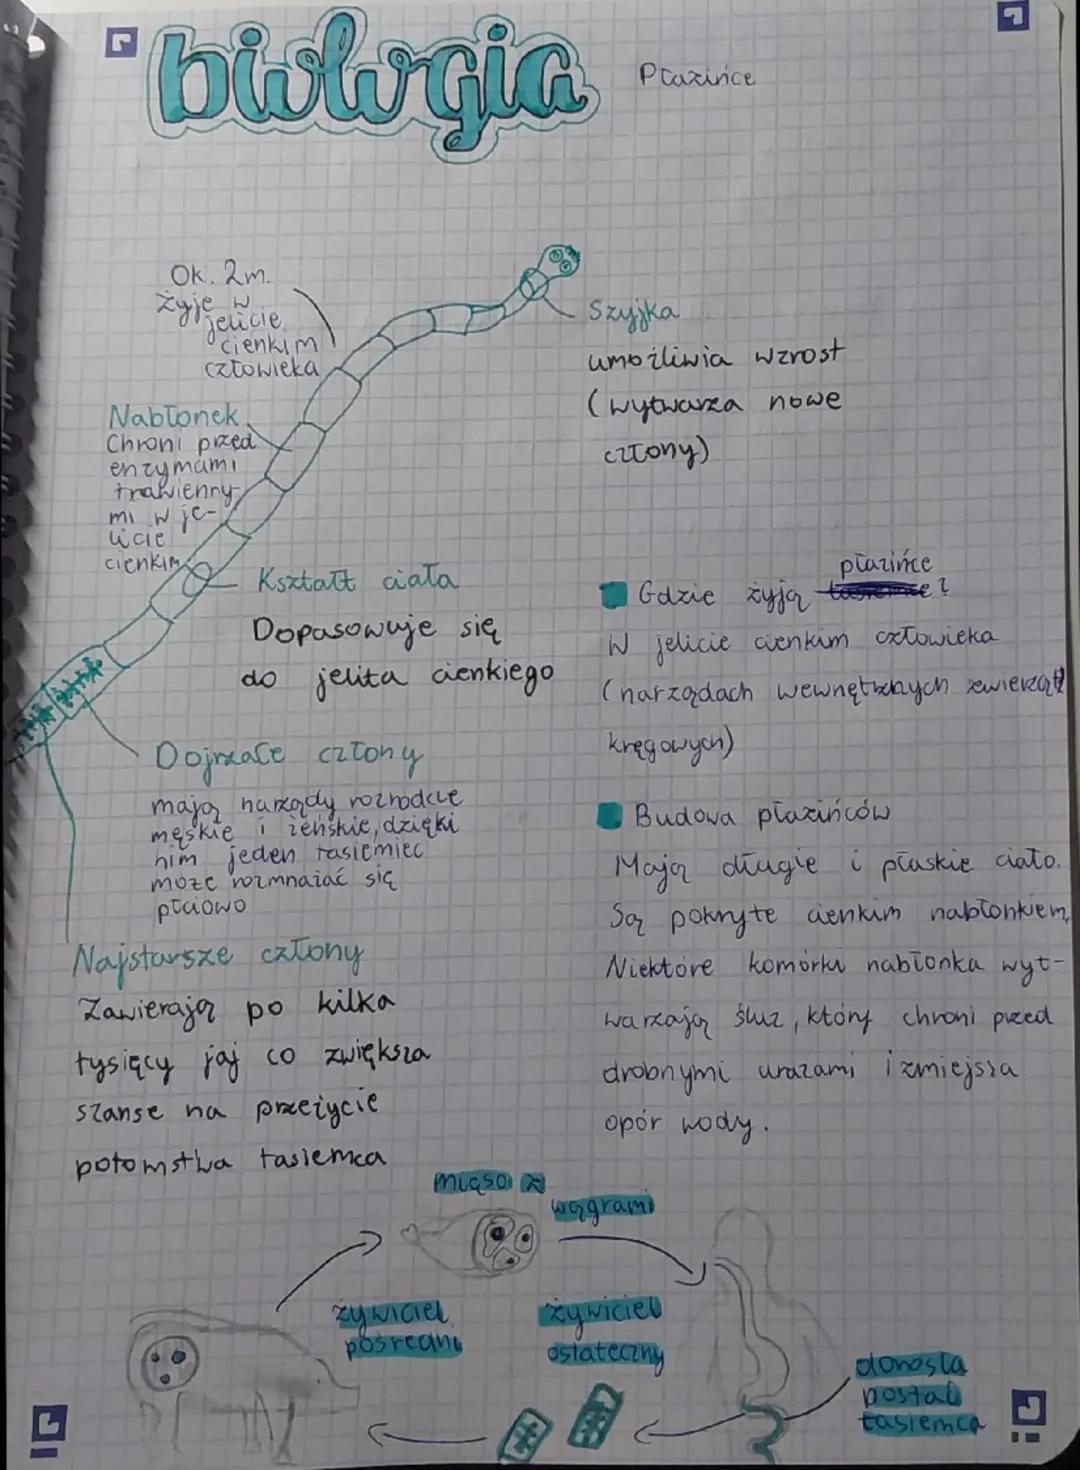 biologia
Płazińce
Ok. 2m.
żyje w
jelicie
cienkim
człowieka
Szyjka
umożliwia wzrost
(wytwarza nowe
człony)
Nabłonek
Chroni przed
enzymami
trawienny-
mi w je-
licie
cienkim
Kształt ciała
Dopasowuje się
do jelita cienkiego
Dojrzałe człony
mają narządy rozrodcze
męskie i żeńskie, dzięki
nim jeden tasiemiec
może rozmnażać się
płciowo
Najstarsze człony
Zawierają po kilka
tysięcy jaj co zwiększa
szanse na przeżycie
potomstwa tasiemca
płazińce
Gdzie żyją ?
W jelicie cienkim człowieka
(narządach wewnętrznych zwierząt
kręgowych)
Budowa płazińców
Mają długie i płaskie ciało.
Są pokryte cienkim nabłonkiem,
Niektóre komórki nabłonka wyt-
warzają śluz, który chroni przed
drobnymi urazami i zmiejsza
opór wody.
mięso z
wągrami
żywiciel
pośredni
żywiciel
ostateczny
dorosła
postać
tasiemca